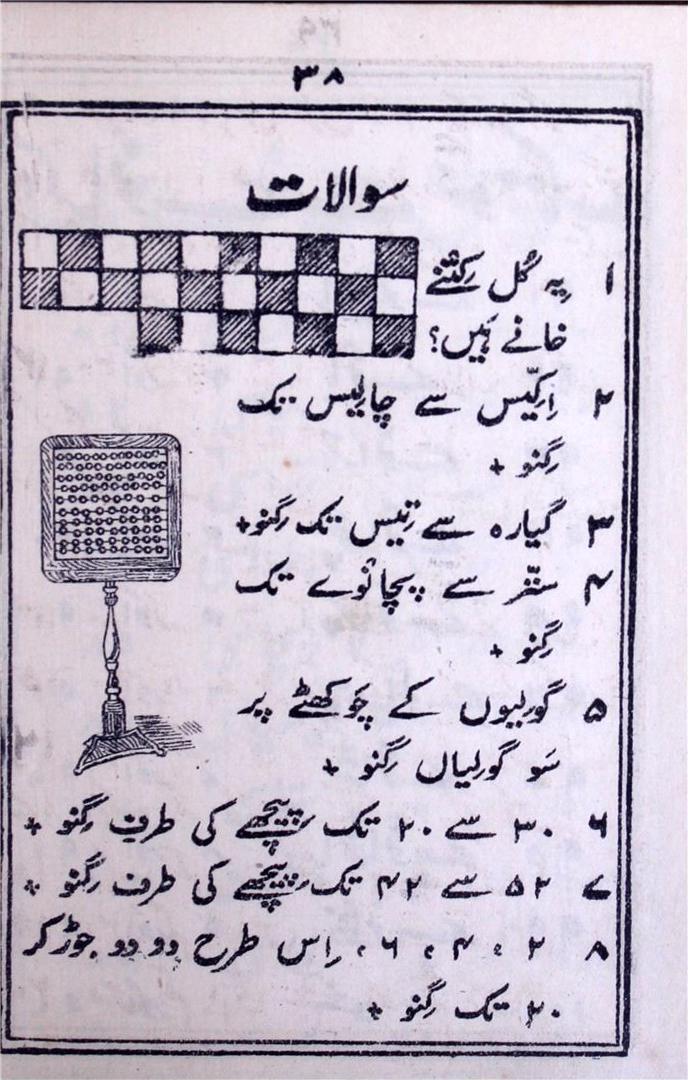 ۳۸
سوالات
۱ یِہ کُل کِتنے
خانے ہَیں؟
۲ اِکّیس سے چالیس تک
گِنو +
۳ گیارہ سے تِیس تک گِنو +
۴ ستّر سے پچانوے تک
گِنو +
۵ گولیوں کے چَوکھٹے پر
سَو گولیاں گِنو +
۶ ۳۰ سے ۲۰ تک پِیچھے کی طرف گِنو +
۷ ۵۲ سے ۴۲ تک پِیچھے کی طرف گِنو +
۸ ۲ ، ۴ ، ۶ ، اِس طرح دو دو جوڑ کر
۲۰ تک گِنو +